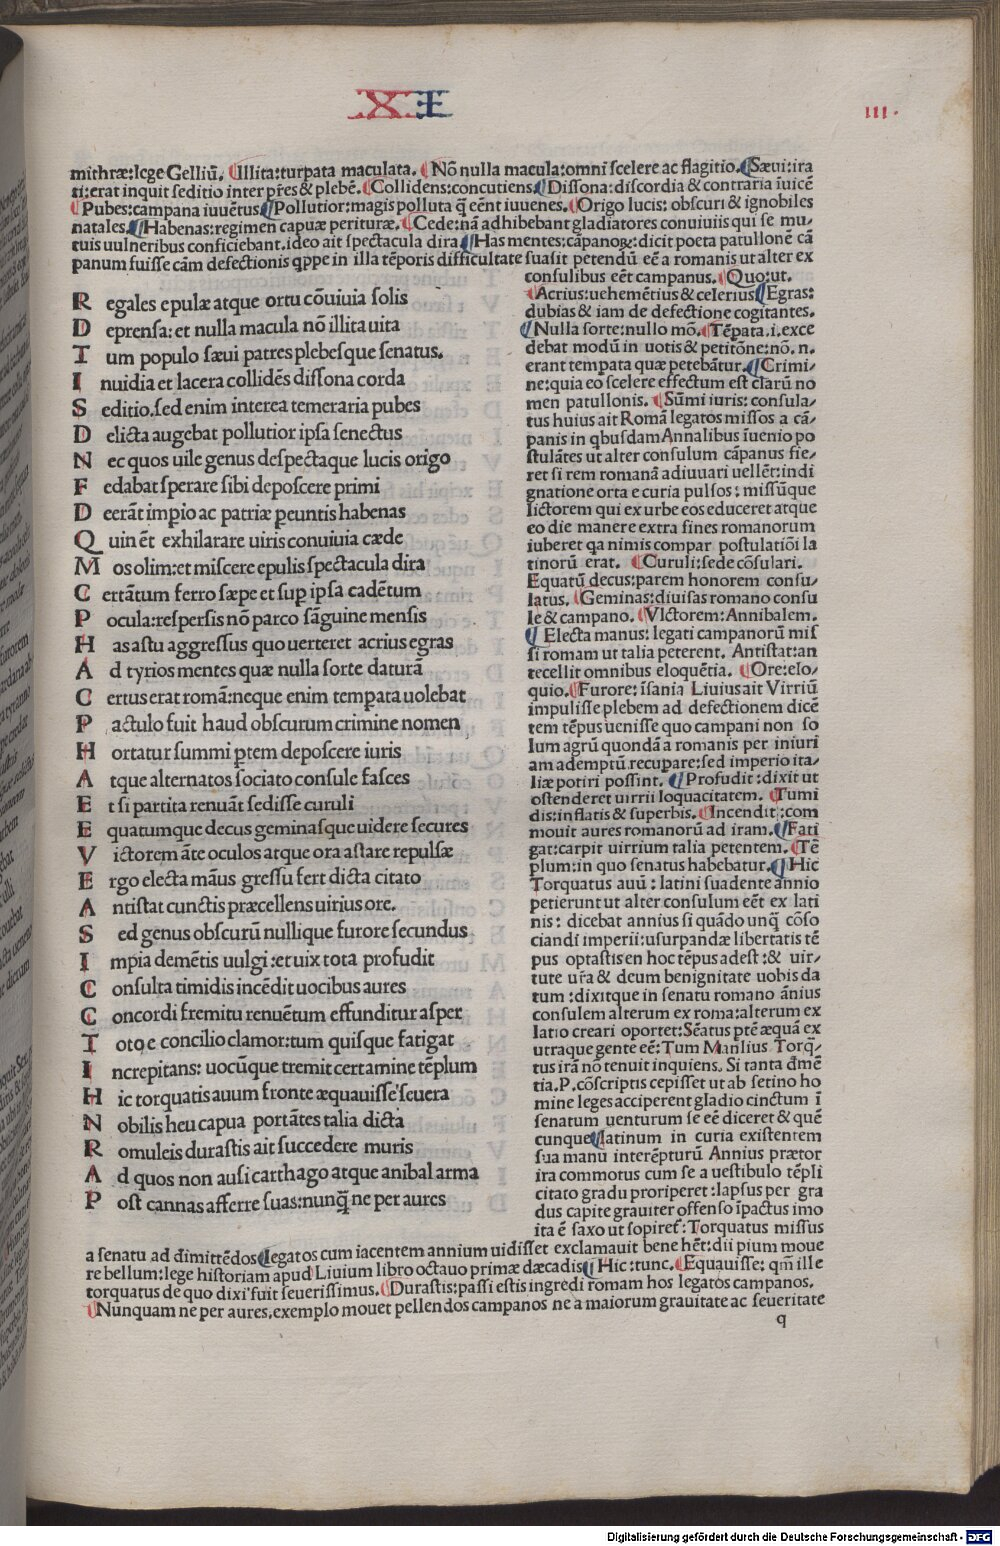 XI
III.
mithræ:lege Gelliū. Illita:turpata maculata. Nō nulla macula:omni scelere ac flagitio. Sæui:ira
ti:erat inquit seditio inter p̄res & plebē. Collidens:concutiens. Dissona:discordia & contraria īuicē
Pubes:campana iuuētus. Pollutior:magis polluta q̄ eēnt iuuenes. Origo lucis: obscuri & ignobiles
natales. Habenas:regimen capuæ perituræ. Cede:nā adhibebant gladiatores conuiuiis qui se mu⸗
tuis uulneribus conficiebant.ideo ait spectacula dira. Has mentes:cāpanoꝝ:dicit poeta patullonē cā
panum fuisse cām defectionis qppe in illa tēporis difficultate suasit petendū eē a romanis ut alter ex
R egales epulæ atque ortu cōuiuia solis
D eprensa: et nulla macula nō illita uita
T um populo sæui patres plebesque senatus.
I nuidia et lacera collidēs dissona corda
S editio.sed enim interea temeraria pubes
D elicta augebat pollutior ipsa senectus
N ec quos uile genus despectaque lucis origo
F edabat sperare sibi deposcere primi
D eerāt impio ac patriæ ꝑeuntis habenas
Q uin ēt exhilarare uiris conuiuia cæde
M os olim:et miscere epulis spectacula dira
C ertātum ferro sæpe et suꝑ ipsa cadētum
P ocula:respersis nō parco sāguine mensis
H as astu aggressus quo uerteret acrius egras
A d tyrios mentes quæ nulla sorte daturā
C ertus erat romā:neque enim tempata uolebat
P actulo fuit haud obscurum crimine nomen
H ortatur summi ꝑtem deposcere iuris
A tque alternatos sociato consule fasces
E t si partita renuāt sedisse curuli
E quatumque decus geminasque uidere secures
V ictorem āte oculos atque ora astare repulsæ
E rgo electa māus gressu fert dicta citato
A ntistat cunctis præcellens uirius ore.
S ed genus obscurū nullique furore secundus
I mpia demētis uulgi :et uix tota profudit
C onsulta timidis incēdit uocibus aures
C oncordi fremitu renuētum effunditur asper
T otoqe concilio clamor:tum quisque fatigat
I ncrepitans: uocūque tremit certamine tēplum
H ic torquatis auum fronte æquauisse seuera
N obilis heu capua portātes talia dicta
R omuleis durastis ait succedere muris
A d quos non ausi carthago atque anibal arma
P ost cannas afferre suas:nunq̄ ne per aures
consulibus eēt campanus. Quo:ut.
Acrius:uehemētius & celerius. Egras:
dubias & iam de defectione cogitantes.
Nulla sorte:nullo mō. Tēpata.i.exce
debat modū in uotis & petitōne:nō. n.
erant tempata quæ petebātur. Crimi⸗
ne:quia eo scelere effectum est clarū no
men patullonis. Sūmi iuris: consula⸗
tus huius ait Romā legatos missos a cā⸗
panis in qbusdam Annalibus īuenio po
stulātes ut alter consulum cāpanus fie⸗
ret si rem romanā adiuuari uellēt:indi
gnatione orta e curia pulsos: missūque
lictorem qui ex urbe eos educeret atque
eo die manere extra fines romanorum
iuberet qa nimis compar postulatiōi la
tinorū erat. Curuli:sede cōsulari.
Equatū decus:parem honorem consu⸗
latus. Geminas:diuisas romano consu
le & campano. VIctorem:Annibalem.
Electa manus: legati campanorū mis
si romam ut talia peterent. Antistat:an
tecellit omnibus eloquētia. Ore:elo⸗
quio. Furore: īsania Liuius ait Virriū
impulisse plebem ad defectionem dicē
tem tēpus uenisse quo campani non so
lum agrū quondā a romanis per iniuri
am ademptū recupare:sed imperio ita⸗
liæ potiri possint. Profudit :dixit ut
ostenderet uirrii loquacitatem. Tumi
dis:inflatis & superbis. Incendit:com
mouit aures romanorū ad iram. Fati
gat:carpit uirrium talia petentem. Tē
plum:in quo senatus habebatur. Hic
Torquatus auū : latini suadente annio
petierunt ut alter consulum eēt ex lati
nis : dicebat annius si quādo unq̄ cōso
ciandi imperii:usurpandæ libertatis tē
pus optastis en hoc tēpus adest :& uir⸗
tute ur̄a & deum benignitate uobis da
tum :dixitque in senatu romano ānius
consulem alterum ex roma:alterum ex
latio creari oportet:Sēatus ꝑtē æquā ex
utraque gente eē: Tum Manlius Torq̄⸗
tus irā nō tenuit inquiens. Si tanta dm̄ē
tia.P.cōscriptis cepisset ut ab setino ho
mine leges acciperent gladio cinctum ī
senatum uenturum se eē diceret & quē
cunque latinum in curia existentem
sua manu interēpturū Annius prætor
ira commotus cum se a uestibulo tēpli
citato gradu proriperet :lapsus per gra
dus capite grauiter offenso īpactus imo
ita ē saxo ut sopiret̄ : Torquatus missus
a senatu ad dimittēdos legatos cum iacentem annium uidisset exclamauit bene hēt:dii pium moue
re bellum:lege historiam apud Liuium libro octauo primæ dæcadis. Hic :tunc. Equauisse: qm̄ ille
torquatus de quo dixi fuit seuerissimus. Durastis:passi estis ingredi romam hos legatos campanos.
Nunquam ne per aures.exemplo mouet pellendos campanos ne a maiorum grauitate ac seueritate
q
Digitalisierung gefördert durch die Deutsche Forschungsgemeinschaft - DFG